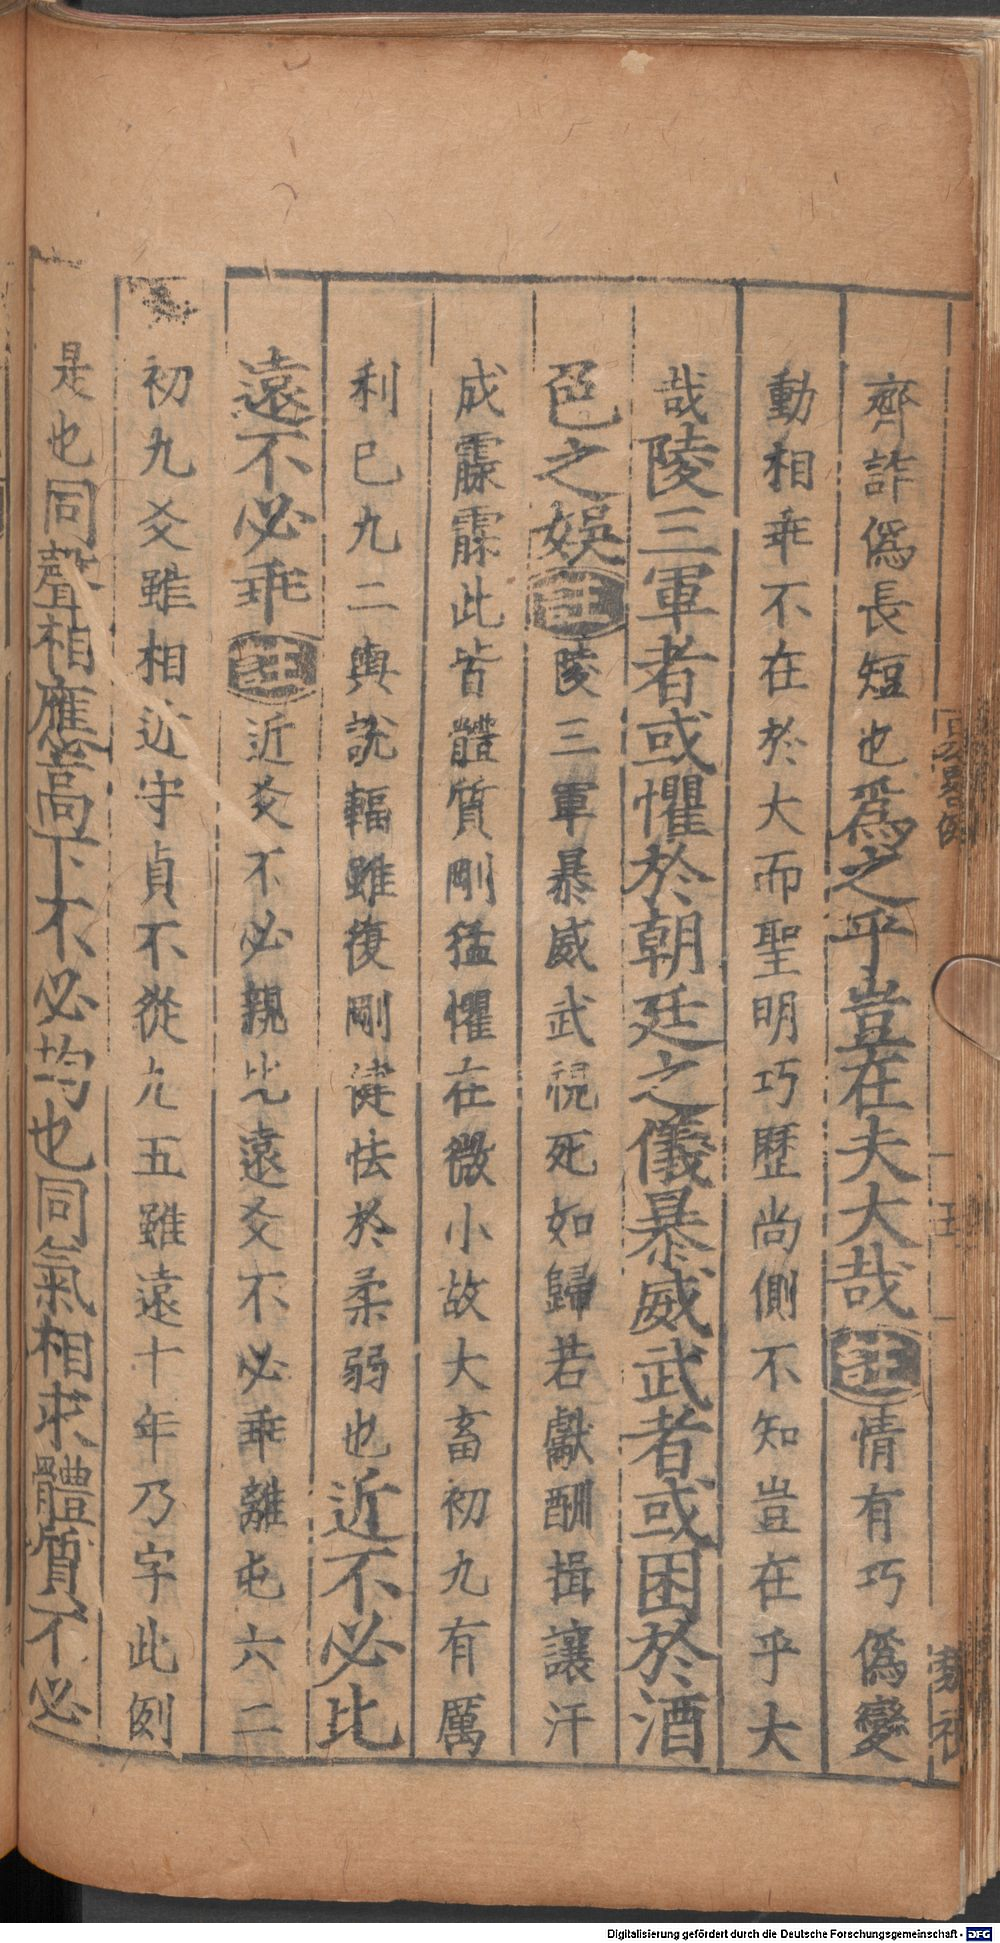 齊詐僞長短也爲之乎豈在夫大哉註情有巧僞變
動相乖不在於大而聖明巧歷尚側不知豈在乎大
哉陵三軍者或懼於朝廷之儀暴威武者或困於酒
色之娛註陵三軍暴威武視死如歸若獻酬揖讓汗
成霡霂此皆體質剛猛懼在微小故大畜初九有厲
利巳九二輿説輻雖復剛健怯於柔弱也近不必比
遠不必乖註近爻不必親比遠爻不必乖離屯六二
初九爻雖相近守貞不從九五雖遠十年乃字此例
是也同聲相應高下不必均也同氣相求體質不必
Digitalisierung gefördert durch die Deutsche Forschungsgemeinschaft - DFG